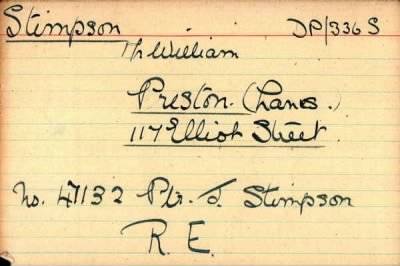 Stimpson DP/336 S
Th William
Preston. (Lancs.)
117 Elliot Street.
No. 47132 Pnr. J. Stimpson
R. E.